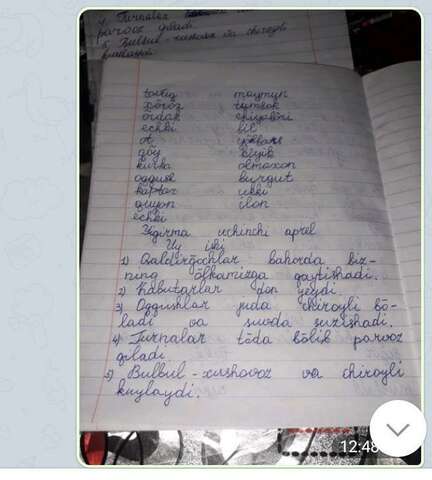 4. Turnalar
parvoz qiladi
5. Bulbul-xushovoz va chiroyli
kuylaydi.
tovuq maymun
Xöroz
ördak
echki fil
ot yölbars
qöy kiyik
kurka olmaxon
oqqush burgut
kaptar ukki
quyon ilon
echki
Yigirma uchinchi aprel
Uy ishi
1) Qaldirğochlar bahorda biz-
ning ölkamizga qaytishadi.
2) Kabutarlar don yeydi.
3) Oqqushlar juda chiroyli bö-
ladi va suvda suzishadi.
4) Turnalar töda bölib parvoz
qiladi.
5) Bulbul-xushovoz va chiroyli
kuylaydi.
12:48